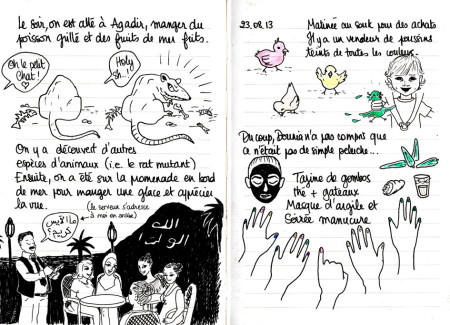 Le soir, on est allé à Agadir, manger du
poisson grillé et des fruits de mer frits.
Oh le petit
Chat !
Holy
sh..!
On y a découvert d'autres
espèces d'animaux (i.e. le rat mutant)
Ensuite, on a été sur la promenade en bord
de mer pour manger une glace et apprécier
la vue.
(le serveur s'adresse
à moi en arabe)
الله
الوطن
23.08.13
Matinée au souk pour des achats
Il y a un vendeur de poussins
teints de toutes les couleurs.
Du coup, Dounia n'a pas compris que
ce n'était pas de simple peluche...
Tajine de gombos
thé + gateaux
Masque d'argile et
Soirée manucure